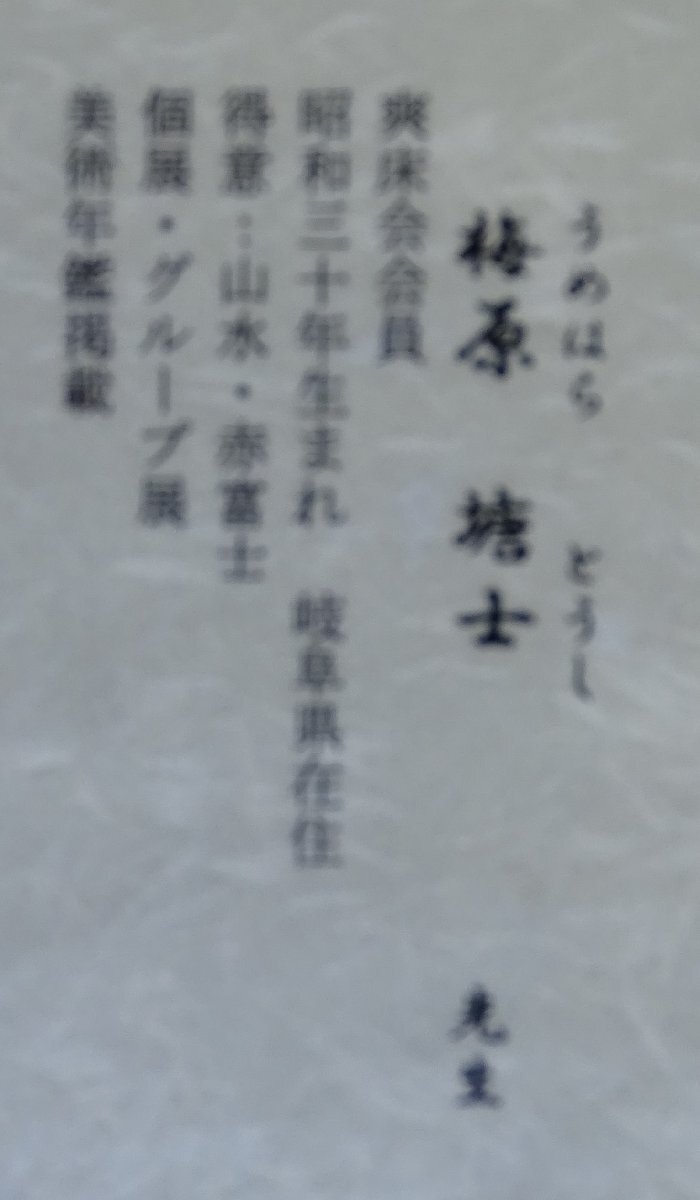 うめはら　どうし
梅原　塘士　先生
爽床会会員
昭和三十年生まれ　岐阜県在住
得意：山水・赤富士
個展・グループ展
美術年鑑掲載